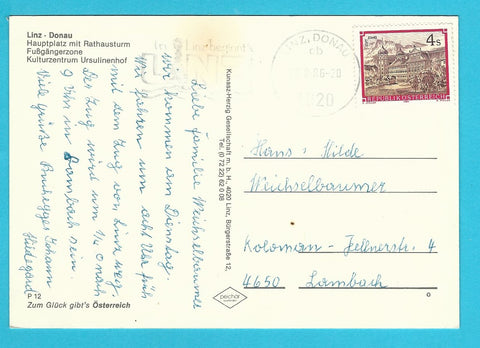 Linz - Donau
Hauptplatz mit Rathausturm
Fußgängerzone
Kulturzentrum Ursulinenhof
Liebe Familie Weichselbaumer
wir kommen am Dienstag
Wir fahren um acht Uhr früh
mit dem Zug von Linz weg.
Der Zug wird um 1/4 nach
9 Uhr in Lambach sein.
Viele Grüße Johann
Hildegard
P 12
Zum Glück gibt's Österreich
Kunasz-Herzig Gesellschaft m. b. H., 4020 Linz, Bürgerstraße 12,
Tel. (0 72 22) 62 0 08
LINZ, DONAU
cb
4020
4 S
REPUBLIK ÖSTERREICH
Hans u. Hilde
Weichselbaumer
Koloman-Fellnerstr. 4
4650 Lambach